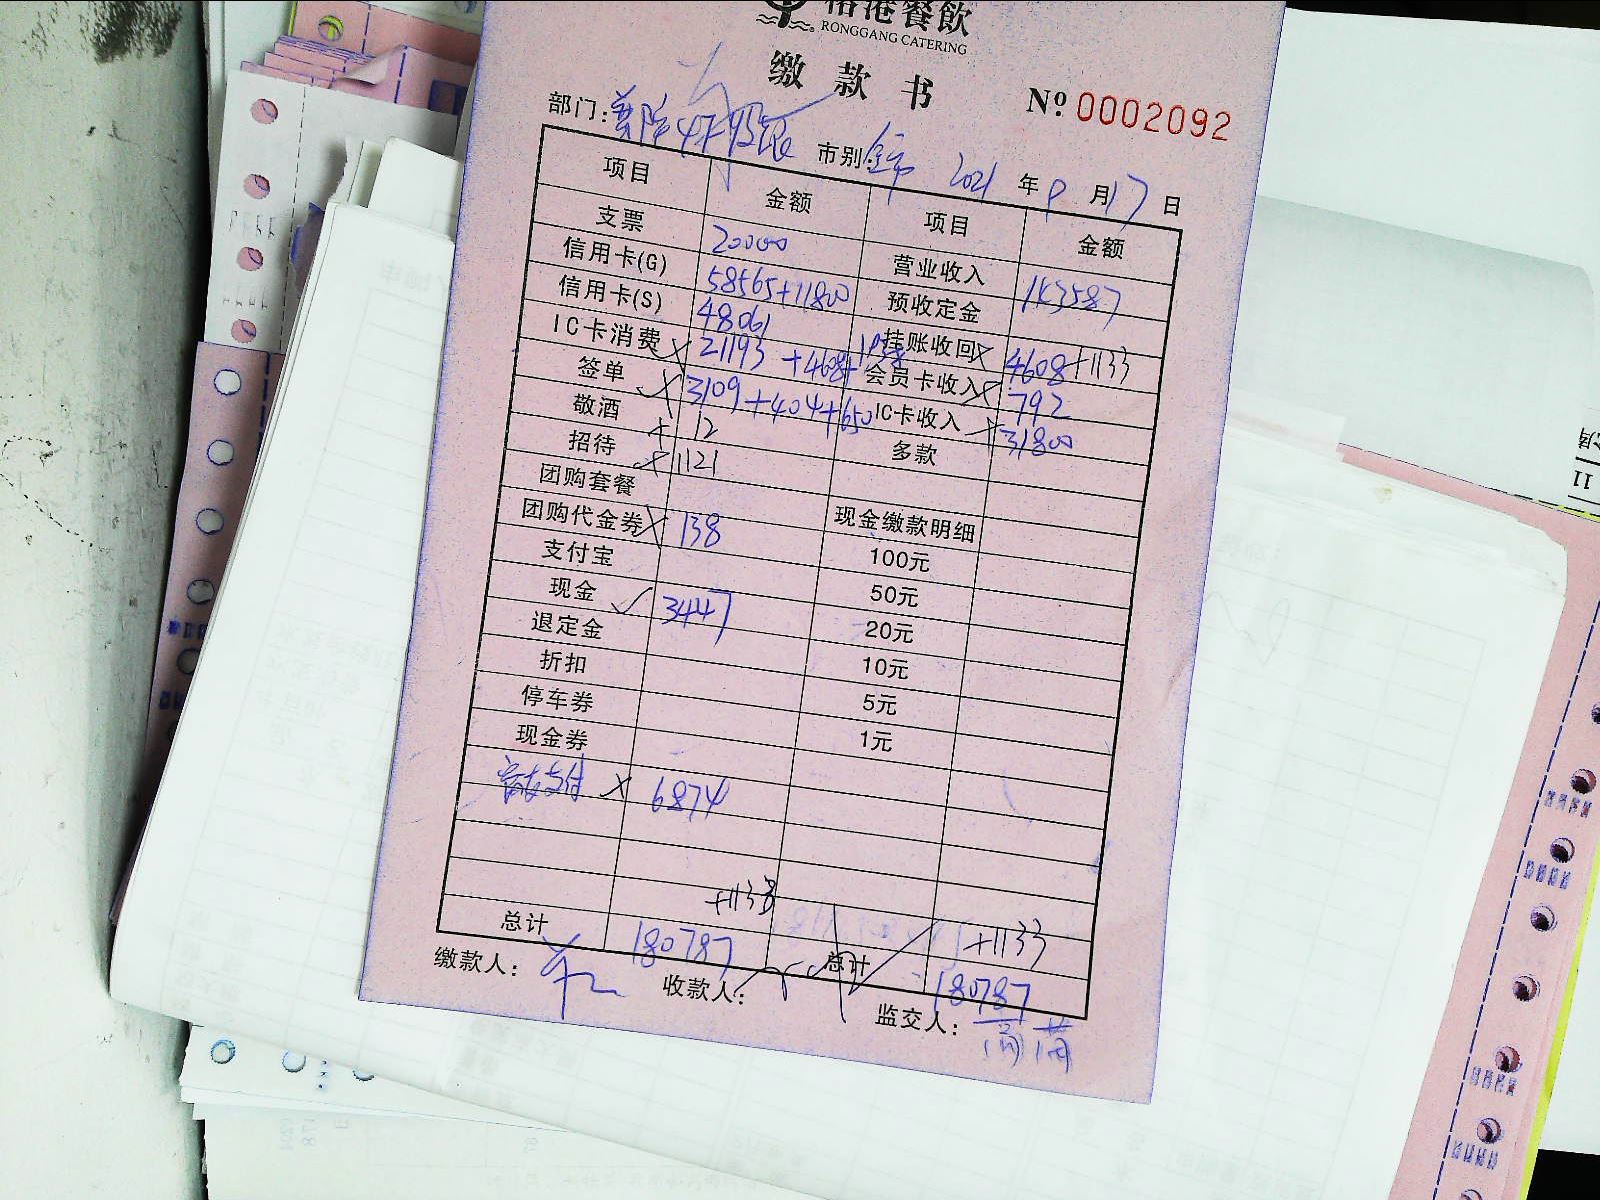 港餐飲
RONGGANG CATERING
缴款书
Nº 0002092
部门:
市别: 全市 2021 年 8 月 17 日
项目 金额 项目 金额
支票 20000 营业收入 143587
信用卡(G) 58565+11800 预收定金
信用卡(S) 48061 挂账收回 4608+1133
IC卡消费 21193 +4608+ 会员卡收入 792
签单 3109+404+650 IC卡收入 31800
敬酒 12 多款
招待 1121
团购套餐 现金缴款明细
团购代金券 138 100元
支付宝 50元
现金 3447 20元
退定金 10元
折扣 5元
停车券 1元
现金券
支付 6874
+1133 +1133
总计 180787 总计 180787
缴款人:
收款人:
监交人:
11